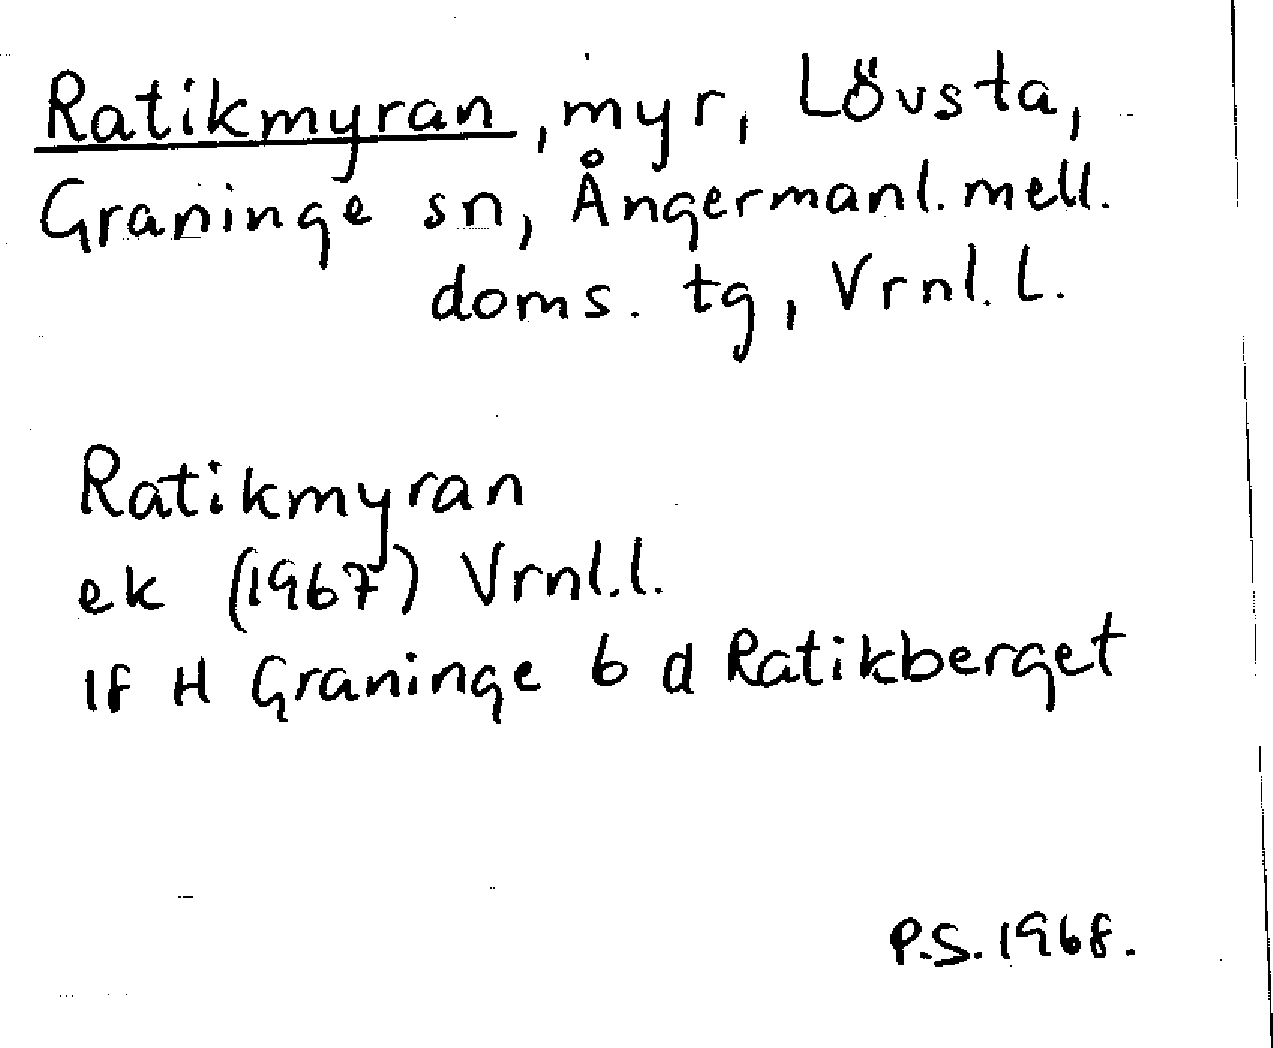 Ratikmyran, myr, Lövsta,
Graninge sn, Ångermanl. mell.
doms. tg, Vrnl. l.
Ratikmyran
ek (1967) Vrnl. l.
lf H Graninge b d Ratikberget
P.S. 1968.